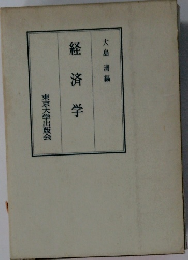 大島 清編
経済学
東京大学出版会